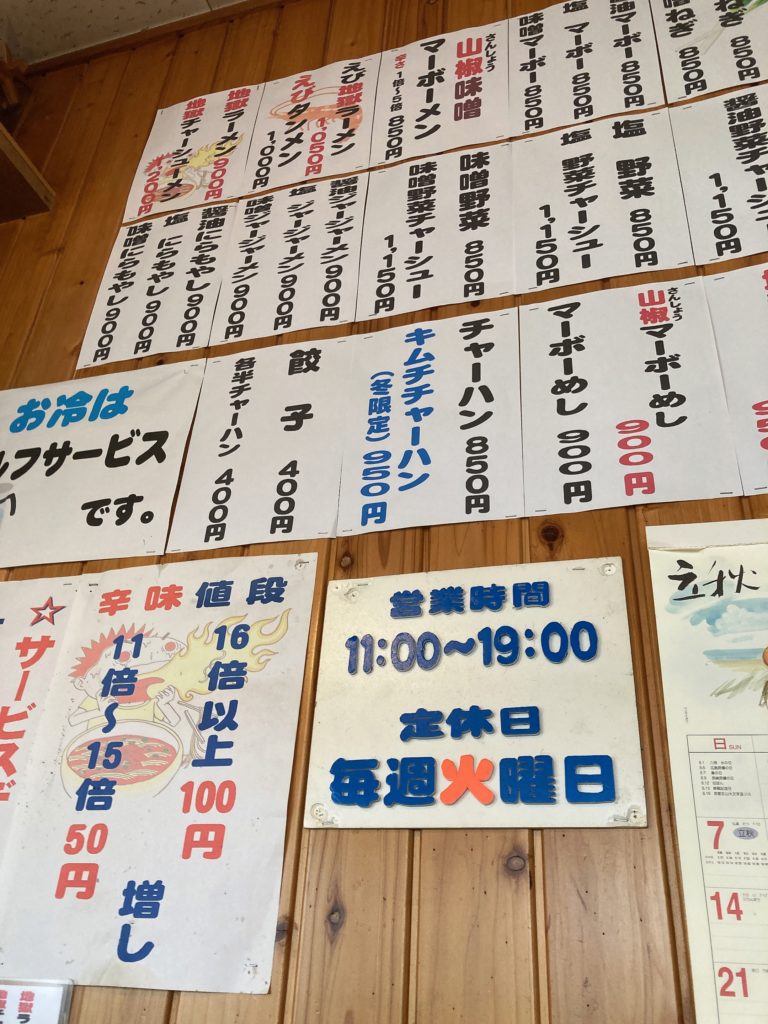 味噌ねぎ 850円
味噌マーボー 850円
塩 マーボー 850円
醤油マーボー 850円
さんしょう
山椒味噌
マーボーメン
辛さ1倍~5倍 850円
えび地獄ラーメン
1,050円
えびタンメン
1,000円
地獄ラーメン 900円
地獄チャーシューメン
1,200円
醤油野菜チャーシュー
1,150円
塩 野菜 850円
塩 野菜チャーシュー
1,150円
味噌野菜 850円
味噌野菜チャーシュー
1,150円
醤油ジャージャーメン 900円
塩 ジャージャーメン 900円
味噌ジャージャーメン 900円
醤油にらもやし 900円
塩 にらもやし 900円
味噌にらもやし 900円
さんしょう
山椒マーボーめし
900円
マーボーめし 900円
チャーハン 850円
キムチチャーハン
(冬限定) 950円
餃子 400円
各半チャーハン 400円
お冷は
ルフサービス
です。
☆サービスデ
辛味値段
16倍以上 100円
11倍~15倍 50円
増し
営業時間
11:00~19:00
定休日
毎週火曜日
立秋
日 SUN
7
立秋
14
21